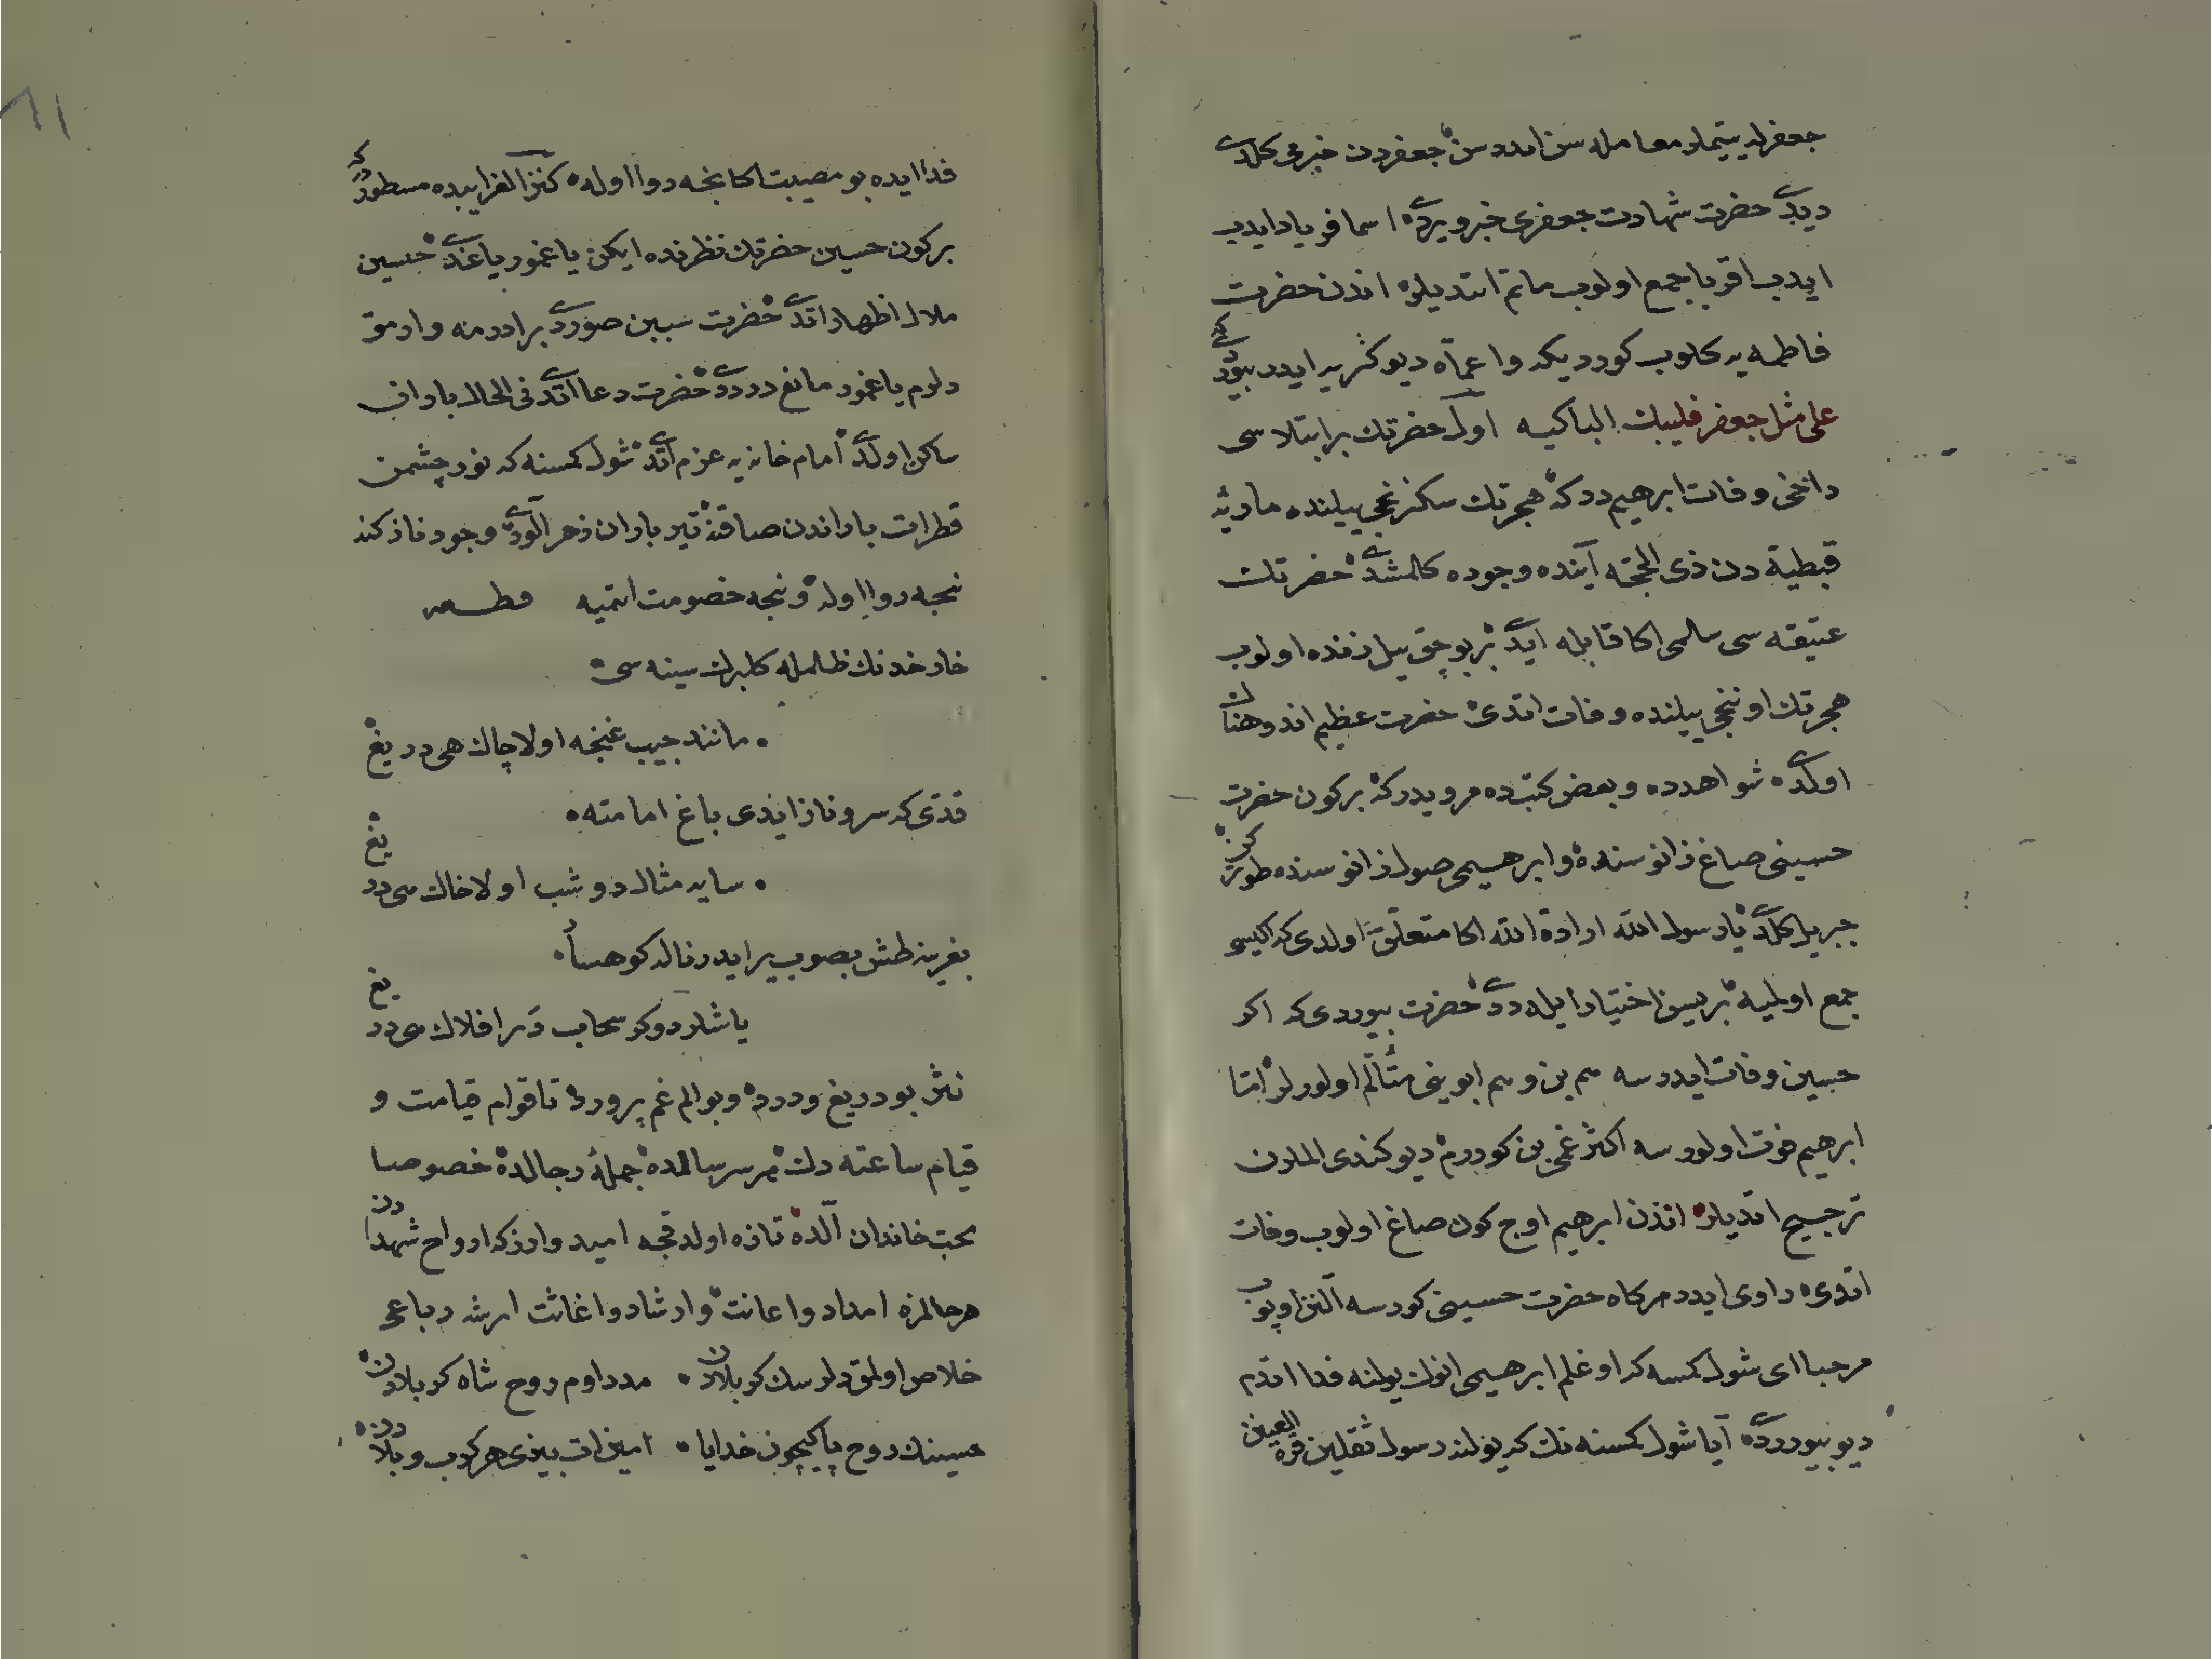 جعفرله یتیملر معامله سن ایدرسن جعفردن خبرمی کلدی
دیدی حضرت شهادت جعفری خبر ویردی اسما فریاد ایدب
ایدب اقربا جمع اولوب ماتم اتدیلر اندن حضرت
فاطمه یه کلوب کوردیکه وا عماه دیو کریه ایدر بیوردی که
علی مثل جعفر فلیبك الباکیه اول حضرتك بر ابتلاسی
داخی وفات ابرهیم در که هجرتك سکزنجی ییلنده ماریهٔ
قبطیة دن ذی الحجه آینده وجوده کلمشدی حضرتك
عتیقه سی سالمی اکا قابله ایدی بر بوچق یل زنده اولوب
هجرتك اوننجی ییلنده وفات اتدی حضرت عظیم اندوهناك
اولدی شواهدده و بعض کتبده مرویدر که بر کون حضرت
حسینی صاغ زانوسنده و ابرهیمی صول زانوسنده طوترکن
جبریل کلدی یا رسول الله ارادة الله اکا متعلق اولدی که ایکیسی
جمع اولمیه برسین اختیار ایله دیدی حضرت بیوردی که اکر
حسین وفات ایدرسه هم بن و هم ابوینی متألم اولورلر اما
ابرهیم فوت اولورسه اکثر غمی بن کورورم دیو کندی المدن
ترجیح اتدیلر اندن ابرهیم اوچ کون صاغ اولوب وفات
اتدی راوی ایدر هرکاه حضرت حسینی کورسه آلنن اوپوب
مرحبا ای شول کمسه که اوغلم ابرهیمی انوك یولنه فدا اتدم
دیو بیوردی آیا شول کمسنه نك که یولنه رسول ثقلین قرة العینن
فدا ایده بو مصیبت اکا نجه روا اوله کنز الغرایبده مسطوردر که
بر کون حسین حضرتك نظرنده ایکن یاغمور یاغدی حسین
ملال اظهار اتدی حضرت سببین صوردی برادرمه وارمق
دلرم یاغمور مانع در دیدی حضرت دعا اتدی فی الحال باران
ساکن اولدی امام خانه یه عزم اتدی شول کمسنه که نور چشمن
قطرات باراندن صاقنه تیر باران زهر آلودی وجود نازکنه
نجه روا اوله و نجه خصومت اتمیه قطعه
خار خدنك ظلمله کلبرك سینه سی
مانند جیب غنچه اولا چاك هی دریغ
قدی که سرو ناز ایدی باغ امامته
سایه مثال دوشب اولا خاك هی دریغ
بغرینه طش بصوب یر ایدر نالد کوهسار
یاشلر دوکر سحاب دیر افلاك هی دریغ
نثر بو دریغ و درد و بو الم غم پرورد تا قوام قیامت و
قیام ساعته دك هر سر سالمده جملهٔ رجالده خصوصا
محب خاندان آلده تازه اولدقجه امیدوارز که ارواح شهدادن
هر حالمزه امداد و اعانت و ارشاد و اغاثت ارشه رباعی
خلاص اولمق دلرسك کربلادن مدد اوم روح شاه کربلادن
حسینك روح پاکیچون خدایا امین ات بیزی هر کرب و بلادن